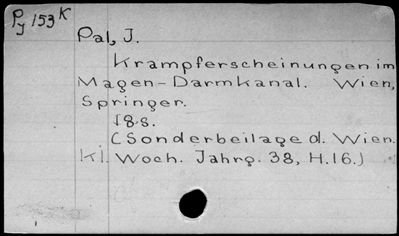 Py 153 K
Pal, J.
Krampferscheinungen im
Magen-Darmkanal. Wien,
Springer.
18 s.
(Sonderbeilage d. Wien.
kl. Woch. Jahrg. 38, H.16.)